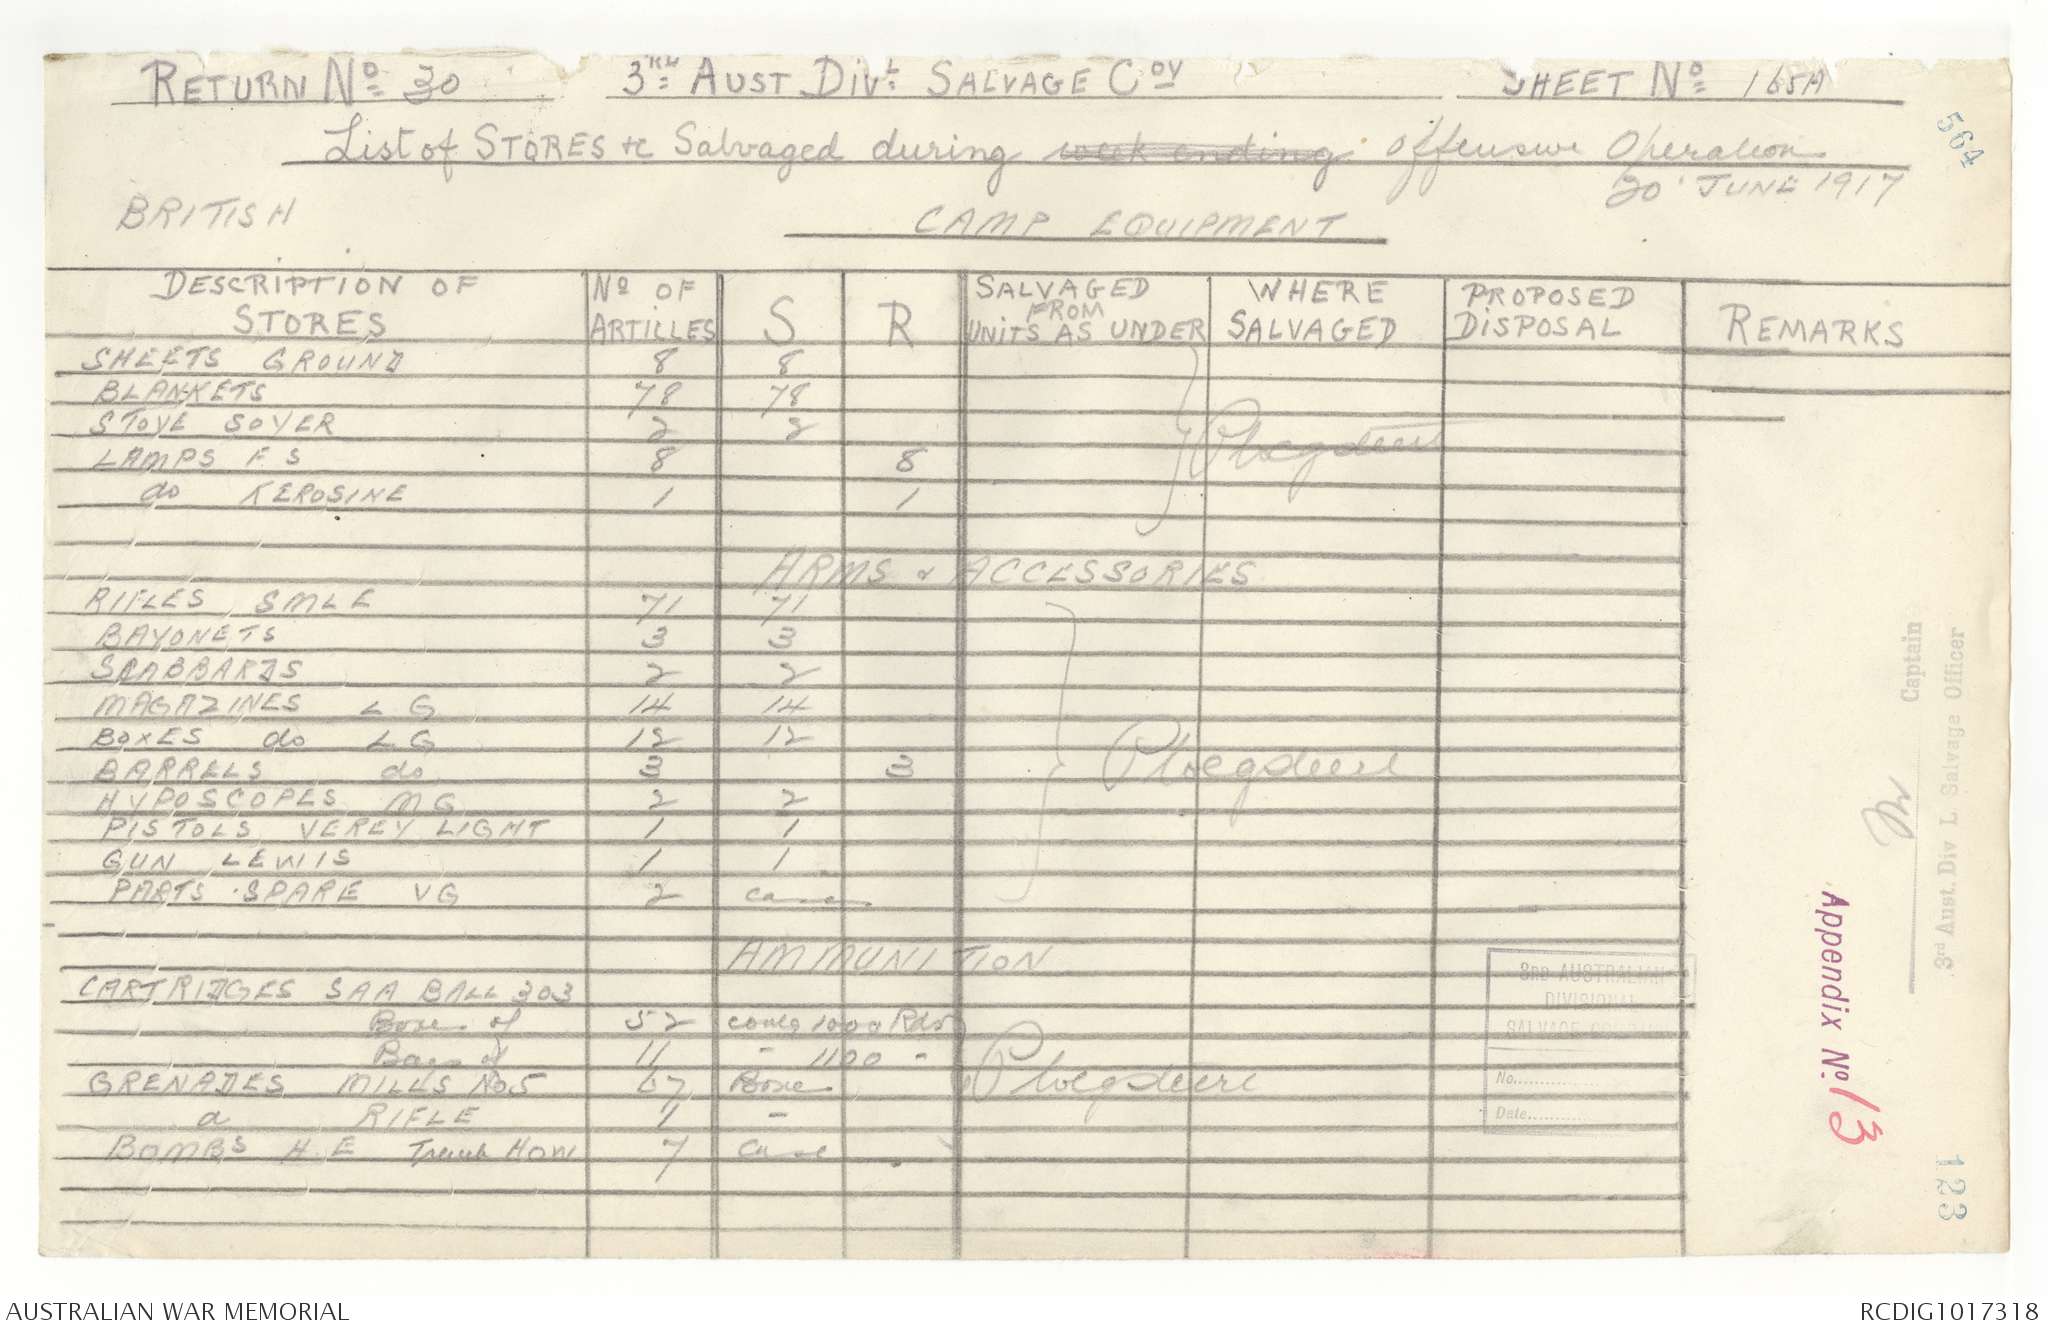 RETURN No 30 3RD AUST DIVL SALVAGE COY SHEET No 165A
List of STORES &c Salvaged during week ending offensive Operation
30 JUNE 1917
564
BRITISH CAMP EQUIPMENT
DESCRIPTION OF STORES No OF ARTICLES S R SALVAGED FROM UNITS AS UNDER WHERE SALVAGED PROPOSED DISPOSAL REMARKS
SHEETS GROUND 8 8
BLANKETS 78 78
STOVE SOYER 2 2
Ploegdeert
LAMPS F S 8 8
do KEROSINE 1 1
ARMS & ACCESSORIES
RIFLES SMLE 71 71
BAYONETS 3 3
SCABBARDS 2 2
MAGAZINES L G 14 14
BOXES do L G 12 12
BARRELS do 3 3
Ploegdeert
HYPOSCOPES MG 2 2
PISTOLS VEREY LIGHT 1 1
GUN LEWIS 1 1
PARTS SPARE VG 2 cases
AMMUNITION
CARTRIDGES SAA BALL 303
Boxes of 52 contg 1000 Rds
11 - 1100 -
GRENADES MILLS No 5 67 Boxes Ploegdeert
RIFLE 1 -
BOMBS H.E Trench How 7 Case
3RD AUSTRALIAN
DIVISIONAL
SALVAGE COMPANY
No..............
Date............
Captain
3rd Aust. Div L Salvage Officer
Appendix No. 13
123
AUSTRALIAN WAR MEMORIAL RCDIG1017318